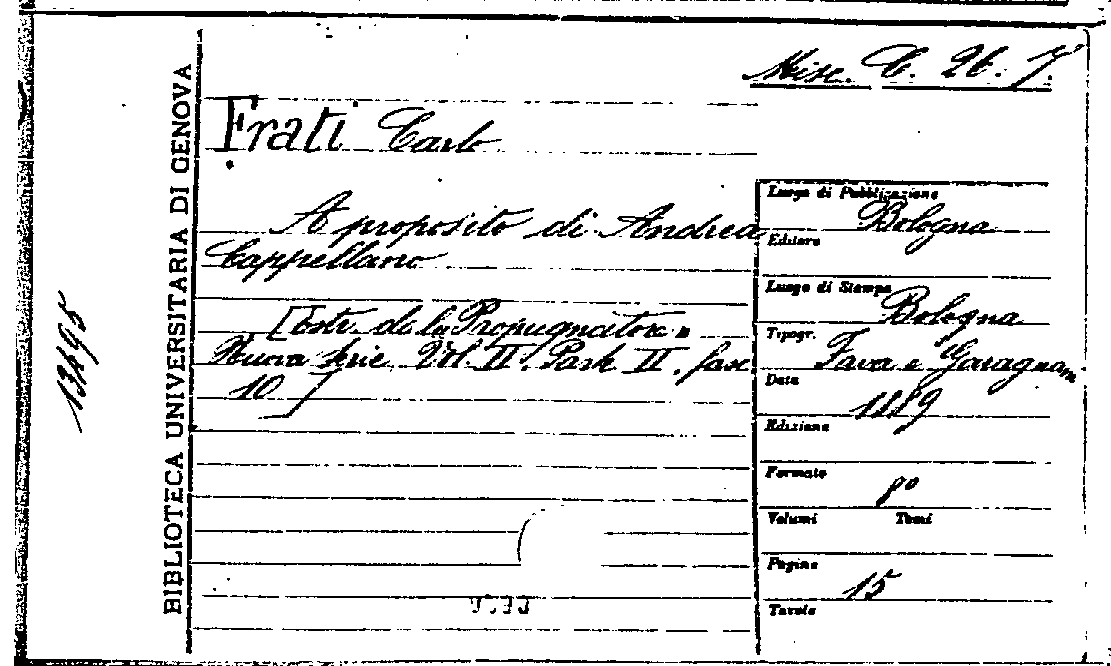 Misc. C. 26. 7.
BIBLIOTECA UNIVERSITARIA DI GENOVA
Frati Carlo
A proposito di Andrea
Cappellano
[Estr. da "Il Propugnatore"
Nuova Serie Vol. II. Parte II. fasc
10]
Luogo di Pubblicazione
Bologna
Editore
Luogo di Stampa
Bologna
Tipogr. Fava e Garagnani
Data
1889
Edizione
Formato
8º
Volumi Tomi
Pagine
15
Tavole